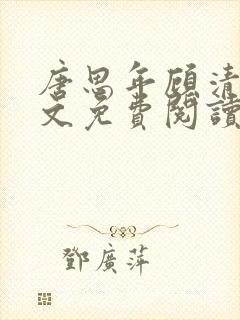 唐思年顧清
文免費閱讀
鄧廣萍